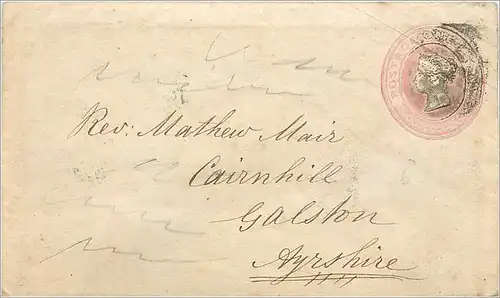 POSTAGE ONE
Rev: Mathew Mair
Cairnhill
Galston
Ayrshire